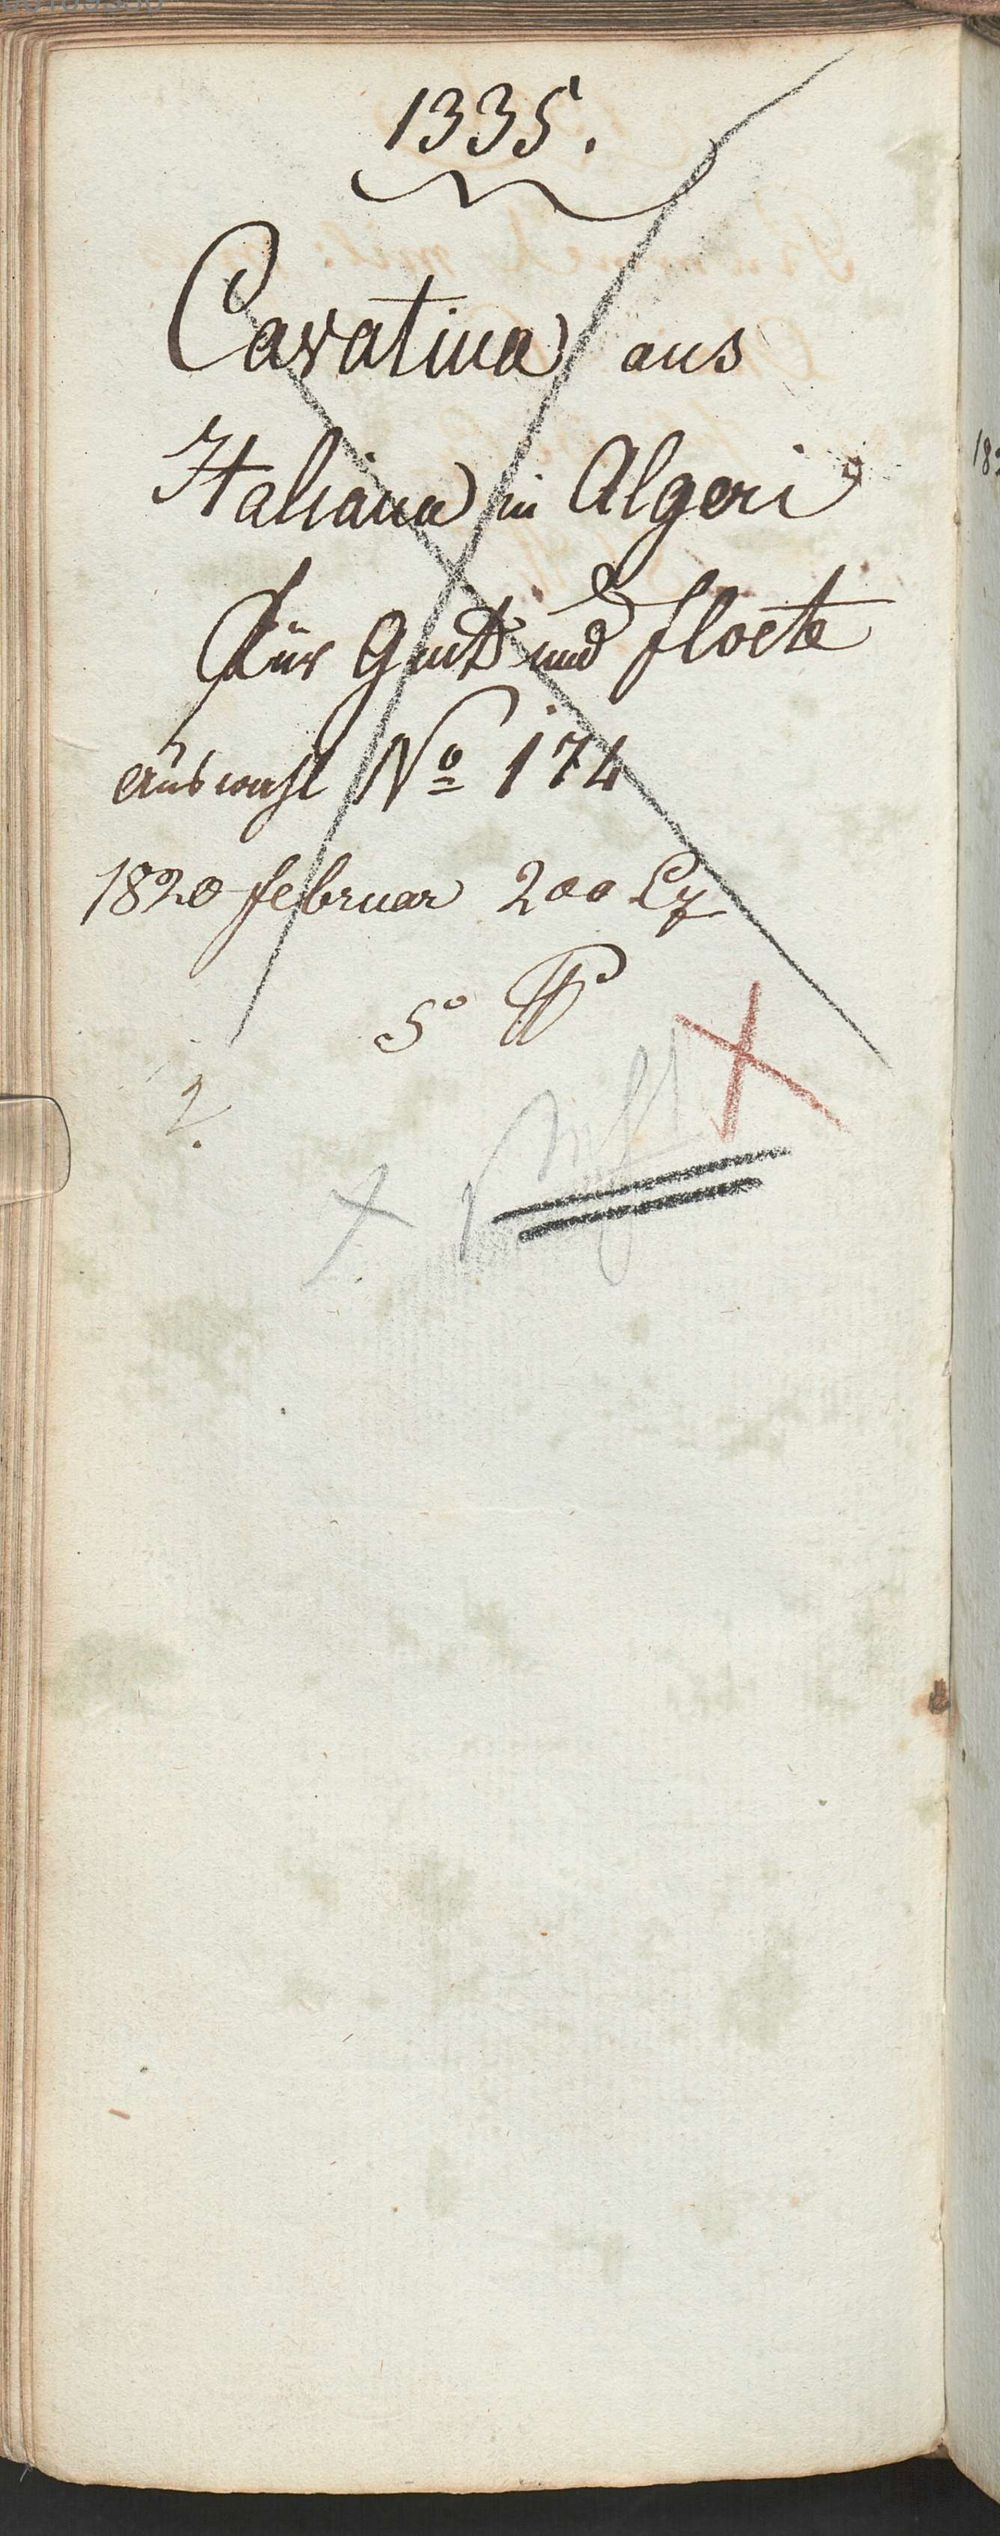 1335.
Cavatina aus
Italiana in Algeri
für Guit und floete
auswahl No 174
1820 februar 200 Ex
5o
2.